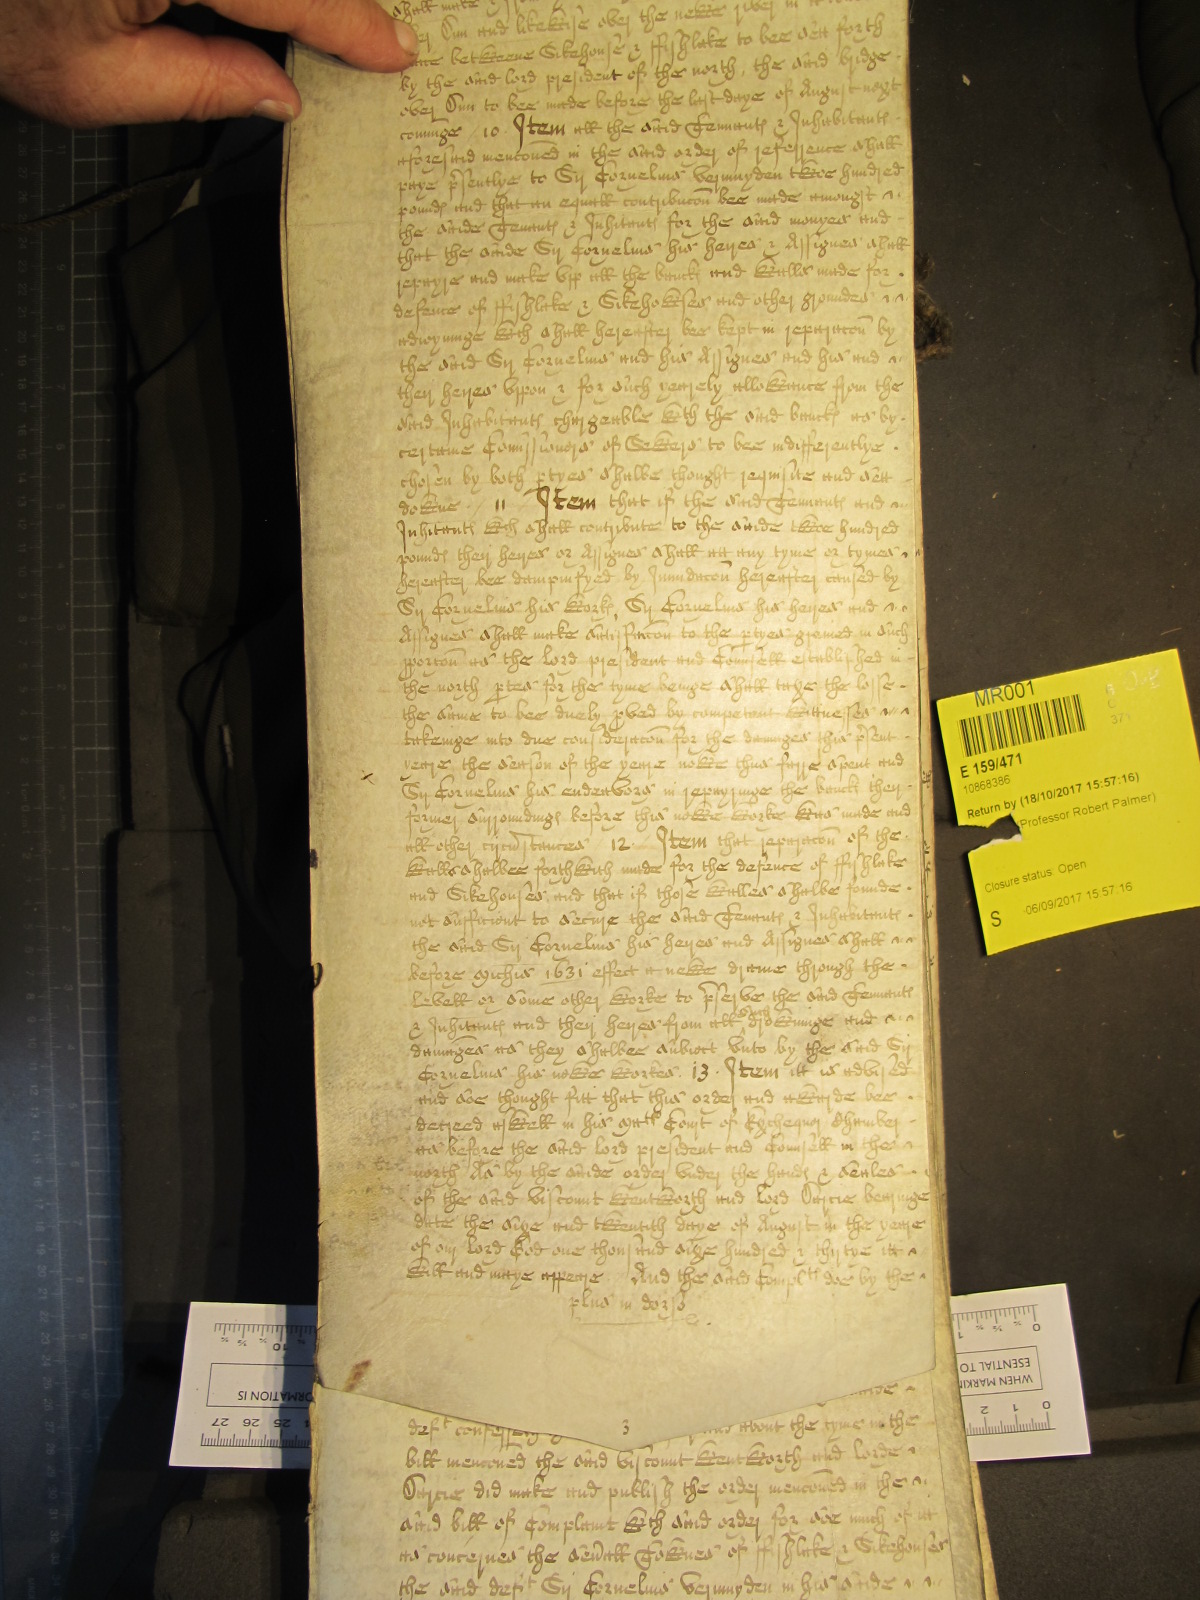 shall make
over Dun and likewise over the newe river in
place betweene Sikehouse & Fishlake to bee sett forth
by the said lord president of the north, the said bridge
over Dun to bee made before the last daye of August next
cominge / 10 Item all the said Tennants & Inhabitants
aforesaid menconed in the said order of reference shall
paye pñtlye to Sir Cornelius Vermuyden twoe hundred
pounds and that an equall contribucon bee made amongst
the saide Tennants & Inhitants for the said monyes and
that the saide Sir Cornelius his heyres & Assignes shall
repayre and make upp all the bancks and walls made for
defence of Fishlake & Sikehowses and other groundes
adioyninge wch shall hereafter bee kept in reparacon by
the said Sir Cornelius and his Assignes and his and
their heyres uppon & for such yearely allowance from the
said Inhabitants chargeable wth the said bancks as by
certaine Comissioners of Sewers to bee indifferentlye
chosen by both ptyes shalbe thought requisite and sett
downe / 11 Item that if the said Tennants and
Inhitants wch shall contribute to the saide twoe hundred
pounds their heyres or Assignes shall att any tyme or tymes
hereafter bee dampnifyed by Inundacon hereafter caused by
Sir Cornelius his works, Sir Cornelius his heyres and
Assignes shall make satisfaccon to the ptyes greived in such
pporcon as the lord president and Counsell established in
the north ptes for the tyme beinge shall taxe the losse
the same to bee duely pved by competent wittnesses
takeinge into due consideracon for the damages this pñt
yeare the season of the yeare nowe thus farre spent and
Sir Cornelius his endeavors in repayringe the bancks their
former surroundings before this newe worke was made and
all other circumstances 12 Item that reparacon of the
walls shalbee forthwith made for the defence of Fishlake
and Sikehouses and that if those walles shalbe founde
not sufficient to secure the said Tennants & Inhabitants
the said Sir Cornelius his heyres and Assignes shall
before Michis 1631 effect a newe draine through the
levell or some other worke to pserve the said Tennants
& Inhitants and their heyres from all such drowninge and
damages as they shalbee subiect unto by the said Sir
Cornelius his newe workes. 13. Item itt is advised
and soe thought fitt that this order and awarde bee
decreed aswell in his mats Court of Exchequer Chamber
as before the said lord president and Counsell in the
north As by the saide order under the hands & seales
of the said viscount Wentworth and lord Darcie bearinge
date the sixe and twentith daye of August in the yeare
of our Lord God one thousand sixe hundred & thirtye itt
will and maye appeare And the said Complts doe by the
plus in dorso
3
deft about the tyme in the
bill menconed the said viscount Wentworth and lorde
Darcie did make and publish the order menconed in the
said bill of Complaint wch said order for soe much of itt
as concernes the severall Townes of Fishlake & Sikehouses
the said deft Sir Cornelius Vermuyden in his saide
MR001
E 159/471
10868386
Return by (18/10/2017 15:57:16)
(Professor Robert Palmer)
Closure status: Open
S 06/09/2017 15:57:16
WHEN MARKIN
ESENTIAL TO
ORMATION IS
0 1 2
25 26 27